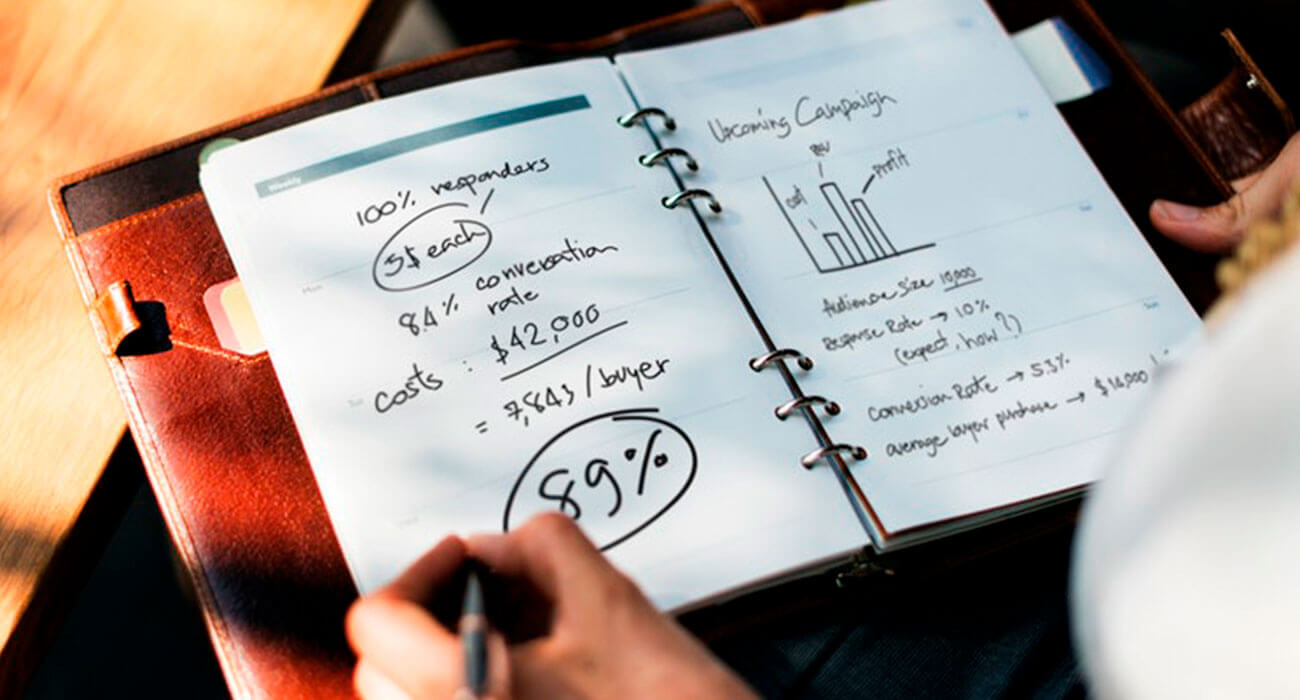 Weekly
100% responders
5$ each
8.4% conversation
rate
costs : $42,000
= 7,843 / buyer
89%
Upcoming Campaign
cost
profit
Audience size 10,000
Response Rate → 10%
(expect, how?)
Conversion Rate → 5.3%
average buyer purchase → $14,000